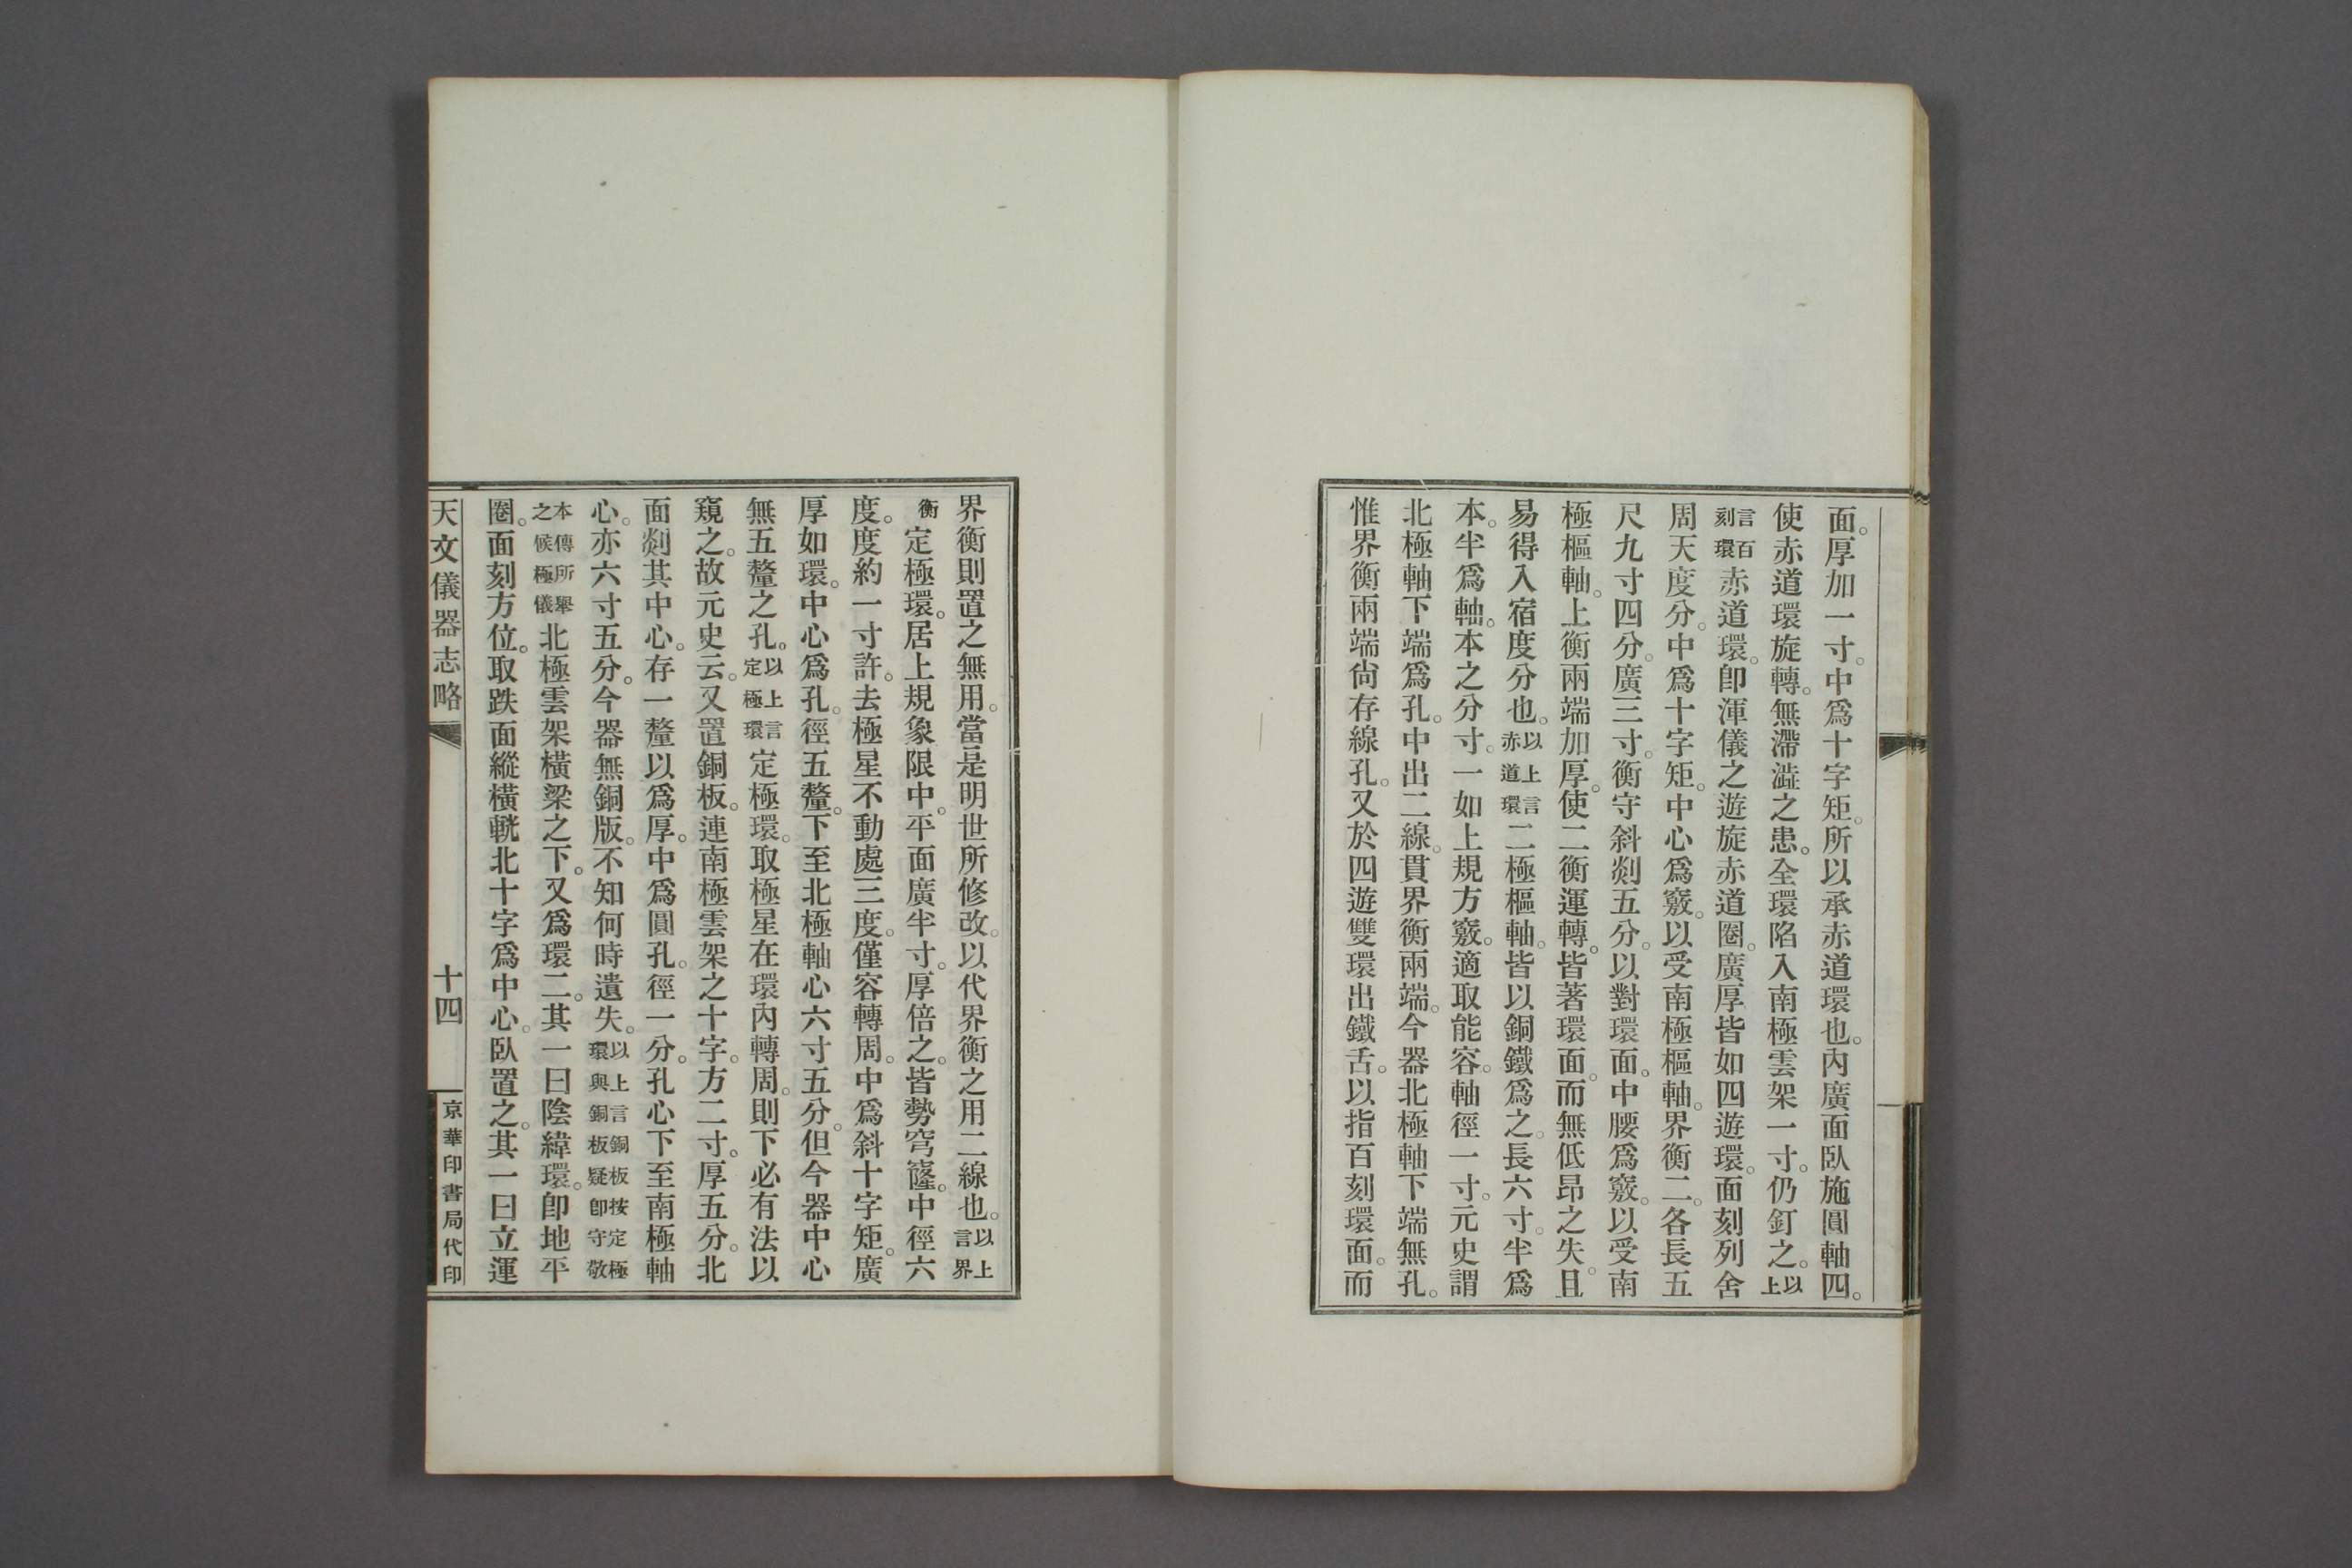 面。厚加一寸。中爲十字矩。所以承赤道環也。內廣面臥施圓軸四。
使赤道環旋轉。無滯澁之患。全環陷入南極雲架一寸。仍釘之。以上
言百刻環赤道環。卽渾儀之遊旋赤道圈。廣厚皆如四遊環。面刻列舍
周天度分。中爲十字矩。中心爲竅。以受南極樞軸。界衡二。各長五
尺九寸四分。廣三寸。衡守斜剡五分。以對環面。中腰爲竅。以受南
極樞軸。上衡兩端加厚。使二衡運轉。皆著環面。而無低昂之失。且
易得入宿度分也。以上言赤道環二極樞軸。皆以銅鐵爲之。長六寸。半爲
本。半爲軸。本之分寸。一如上規方竅。適取能容。軸徑一寸。元史謂
北極軸下端爲孔。中出二線。貫界衡兩端。今器北極軸下端無孔。
惟界衡兩端尙存線孔。又於四遊雙環出鐵舌。以指百刻環面。而
界衡則置之無用。當是明世所修改。以代界衡之用二線也。以上言界
衡定極環。居上規象限中。平面廣半寸。厚倍之。皆勢穹窿。中徑六
度。度約一寸許。去極星不動處三度。僅容轉周。中爲斜十字矩。廣
厚如環。中心爲孔。徑五釐。下至北極軸心六寸五分。但今器中心
無五釐之孔。以上言定極環定極環。取極星在環內轉周。則下必有法以
窺之。故元史云。又置銅板。連南極雲架之十字。方二寸。厚五分。北
面剡其中心。存一釐以爲厚。中爲圓孔。徑一分。孔心下至南極軸
心。亦六寸五分。今器無銅版。不知何時遺失。以上言銅板按定極環與銅板疑卽守敬
本傳所舉之候極儀北極雲架橫梁之下。又爲環二。其一曰陰緯環。卽地平
圈。面刻方位。取趺面縱橫輄北十字爲中心。臥置之。其一曰立運
天文儀器志略
十四
京華印書局代印